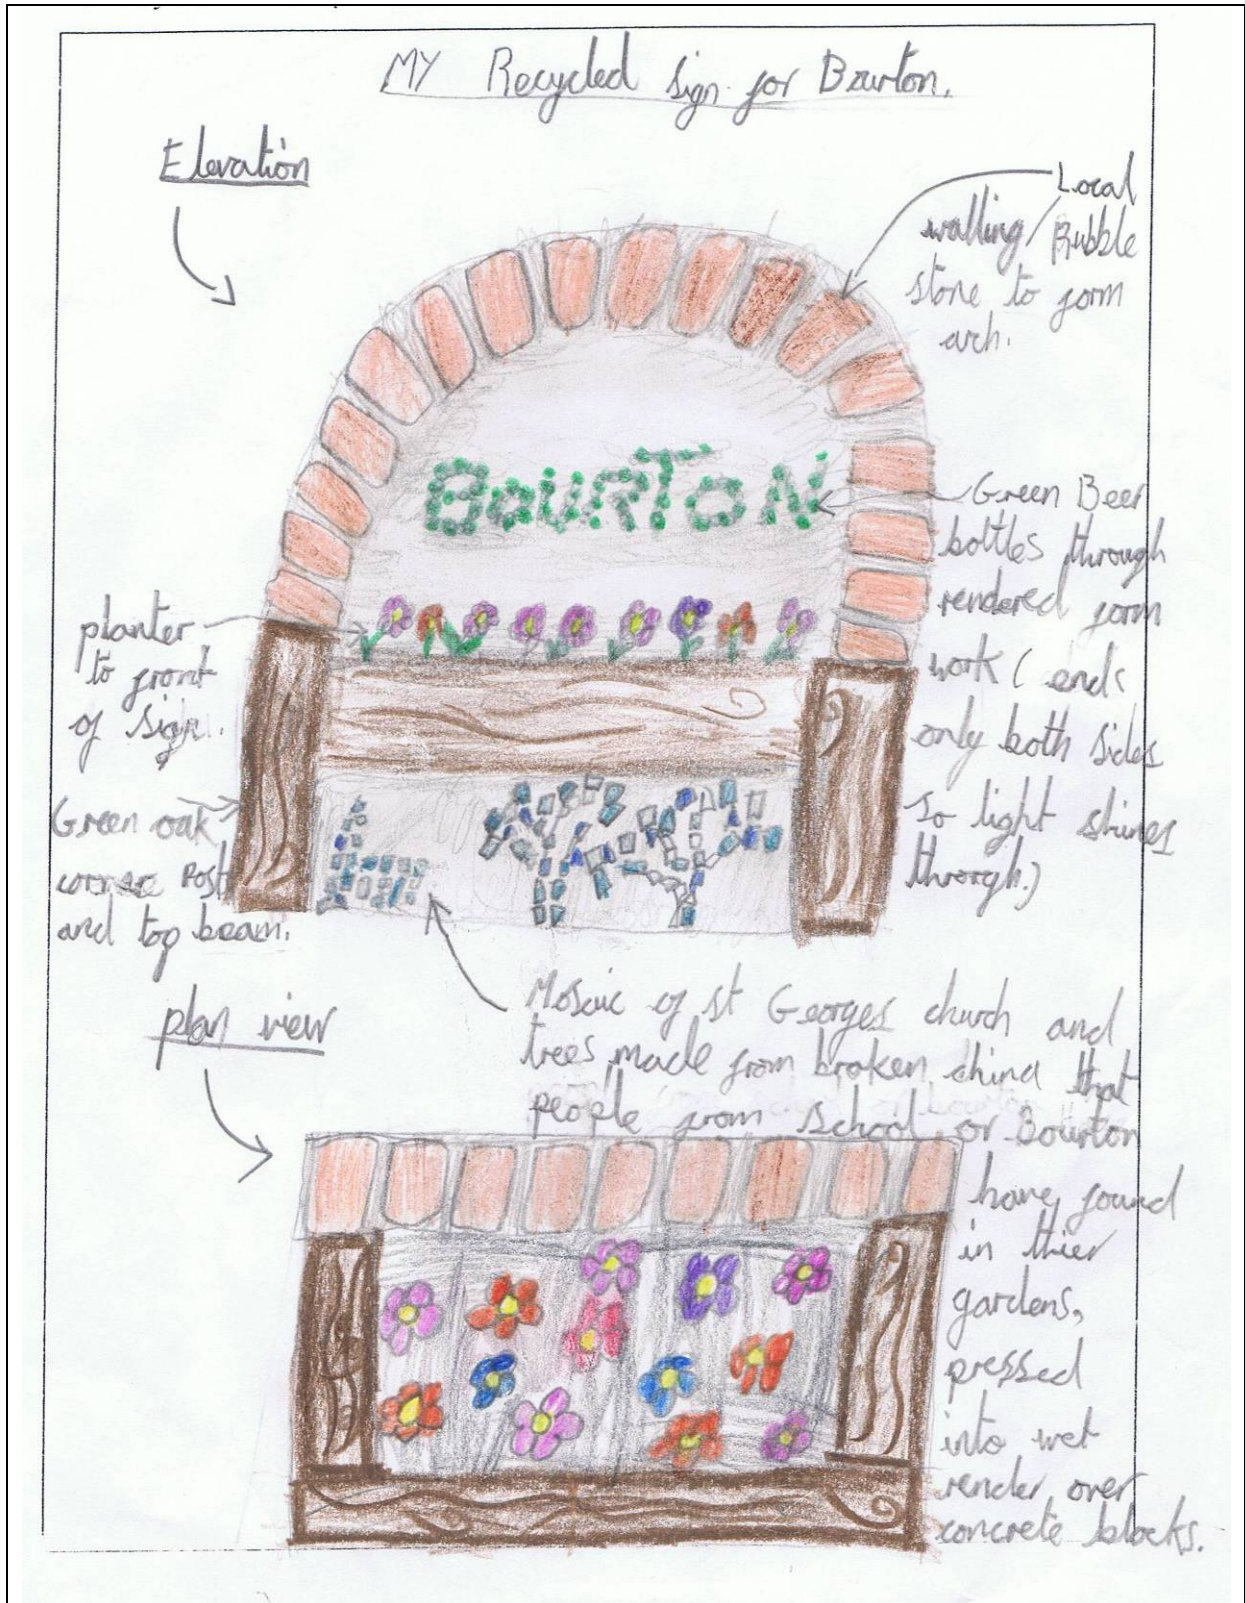 MY Recycled sign for Bourton.
Elevation
Local
walling/Rubble
stone to form
arch.
BOURTON
Green Beer
bottles through
rendered form
work (ends
only both sides
so light shines
through.)
planter
to front
of sign.
Green oak
corner Post
and top beam.
plan view
Mosaic of st Georges church and
trees made from broken china that
people from school or Bourton
have found
in thier
gardens,
pressed
into wet
render over
concrete blocks.